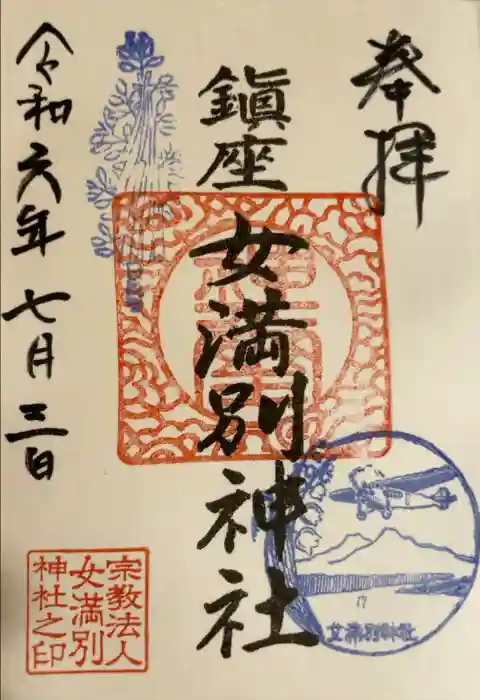 奉拝
鎮座
女満別神社
令和六年七月三日
宗教法人
女満別
神社之印
女満別神社